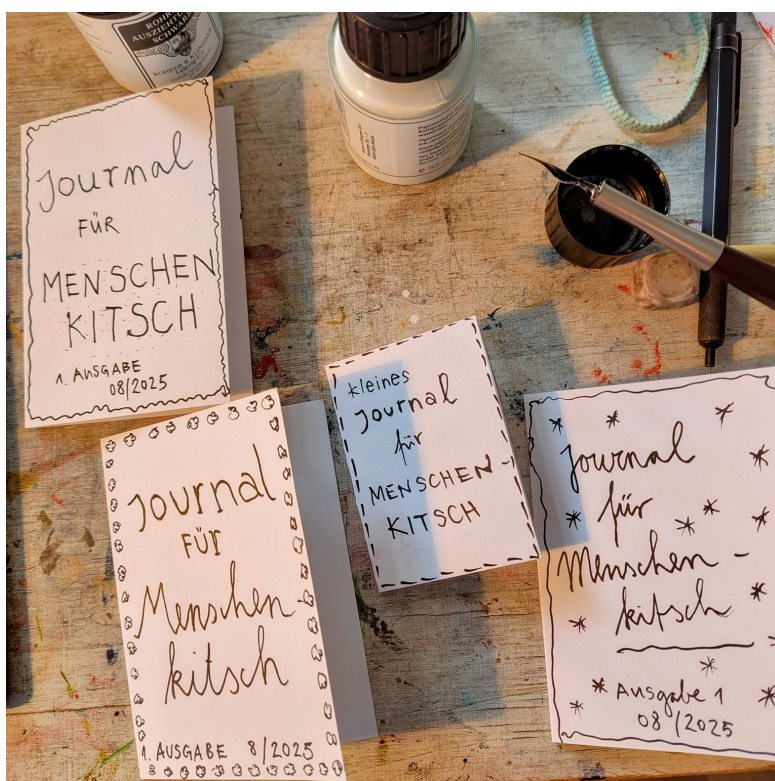 ROHRER
AUSZIEHTUSCHE
SCHWARZ
ROHRER & KLINGNER
LEIPZIG
Journal
FÜR
MENSCHEN
KITSCH
1. AUSGABE
08/2025
Journal
FÜR
Menschen
kitsch
1. AUSGABE 8/2025
kleines
Journal
für
MENSCHEN-
KITSCH
Journal
für
Menschen-
kitsch
Ausgabe 1
08/2025